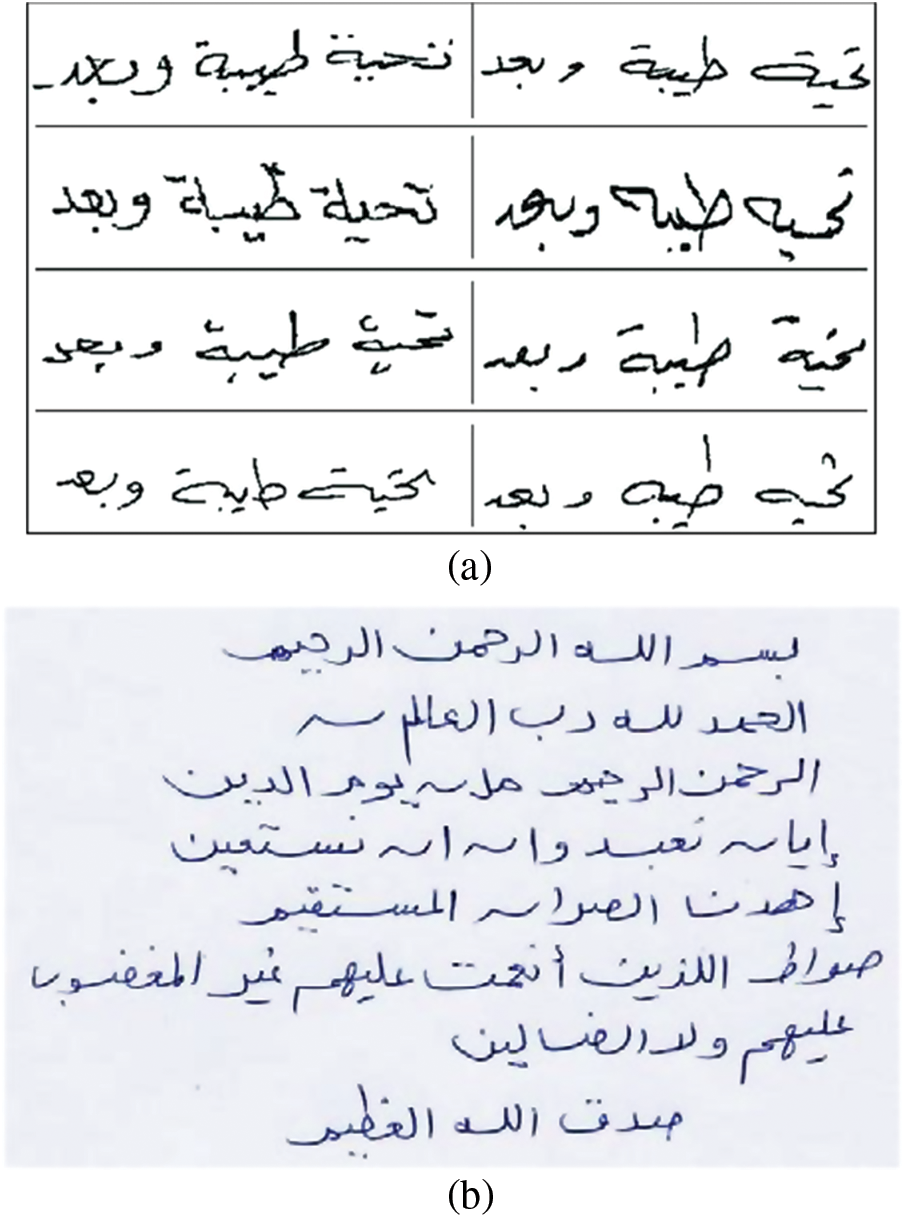 تحية طيبة و بعد
تحية طيبة وبعد
تحيه طيبه وبعد
تحية طيبة وبعد
تحية طيبة وبعد
تحية طيبة وبعد
تحيه طيبه وبعد
تحية طيبة وبعد
(a)
بسم الله الرحمن الرحيم
الحمد لله رب
الرحمن الرحيم يوم الدين
نعبد نستعين
إهدنا المستقيم
صراط اللذين أنعمت عليهم غير المغضوب
عليهم ولا الضالين
صدق الله العظيم
(b)